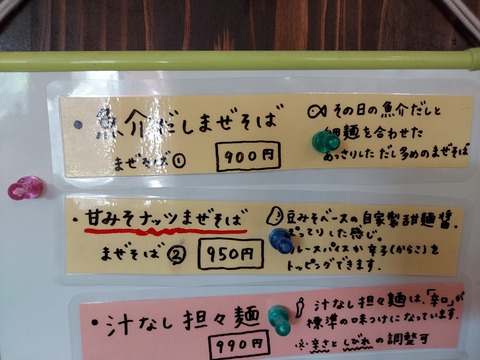 ・魚介だしまぜそば
まぜそば① 900円
その日の魚介だしと
細麺を合わせた
あっさりしただし多めのまぜそば
・甘みそナッツまぜそば
まぜそば② 950円
豆みそベースの自家製甜麺醤。
ぽってりした感じ。
カレースパイスか辛子(からこ)を
トッピングできます。
・汁なし担々麺
990円
汁なし担々麺は、「辛口」が
標準の味つけになっています。
※辛さとしびれの調整可